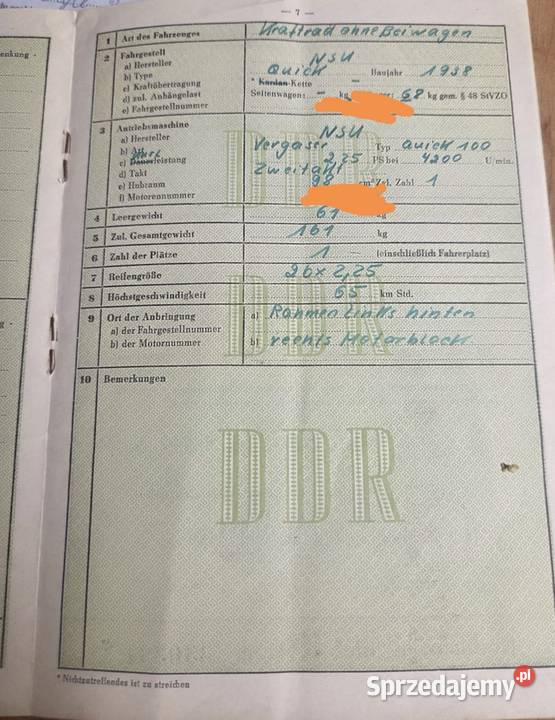 — 7 —
enkung -
1 Art des Fahrzeuges Kraftrad ohne Beiwagen
2 Fahrgestell
a) Hersteller NSU
b) Type Quick Baujahr 1938
c) Kraftübertragung * Kardan-Kette —
d) zul. Anhängelast Seitenwagen: — kg 68 kg gem. § 48 StVZO
e) Fahrgestellnummer
3 Antriebsmaschine
a) Hersteller NSU
b) Art Vergaser Typ Quick 100
c) Dauerleistung 2,25 PS bei 4200 U/min.
d) Takt Zweitakt
e) Hubraum 98 cm³ Zyl. Zahl 1
f) Motorennummer
4 Leergewicht 61 kg
5 Zul. Gesamtgewicht 161 kg
6 Zahl der Plätze 1 — (einschließlich Fahrerplatz)
7 Reifengröße 26 x 2,25
8 Höchstgeschwindigkeit 65 km Std.
9 Ort der Anbringung
a) der Fahrgestellnummer a) Rahmen links hinten
b) der Motornummer b) rechts Motorblock
10 Bemerkungen
DDR
DDR
DDR
* Nichtzutreffendes ist zu streichen
Sprzedajemy.pl